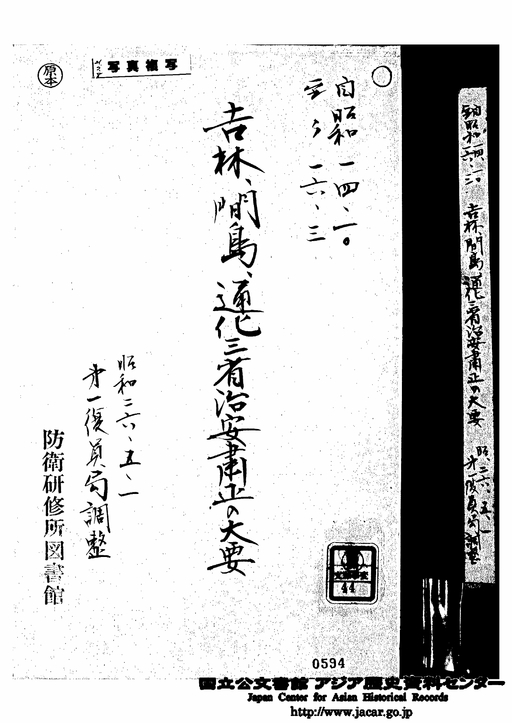 原本
写真複写
自昭和一四、一〇
至〃一六、三
吉林、間島、通化三省治安粛正の大要
昭和二六、五、一
第一復員局調整
防衛研修所図書館
自昭和一四、一〇
吉林、間島、通化三省治安粛正の大要
昭二六、五、一
第一復員局調整
44
0594
国立公文書館 アジア歴史資料センター
Japan Center for Asian Historical Records
http://www.jacar.go.jp